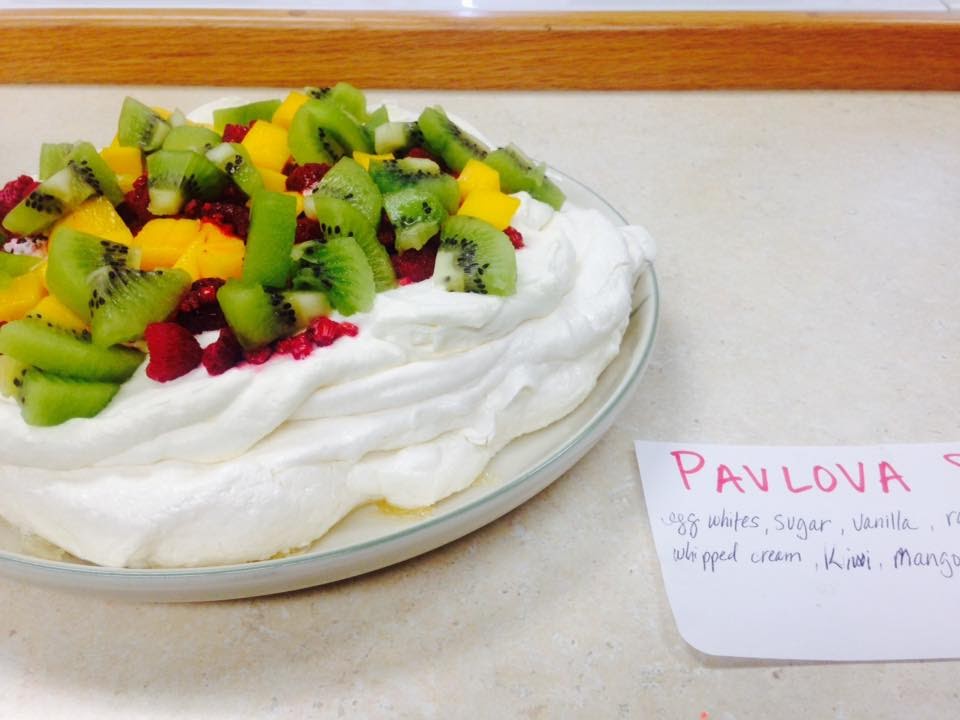 PAVLOVA
egg whites, sugar, vanilla,
whipped cream, Kiwi, Mango